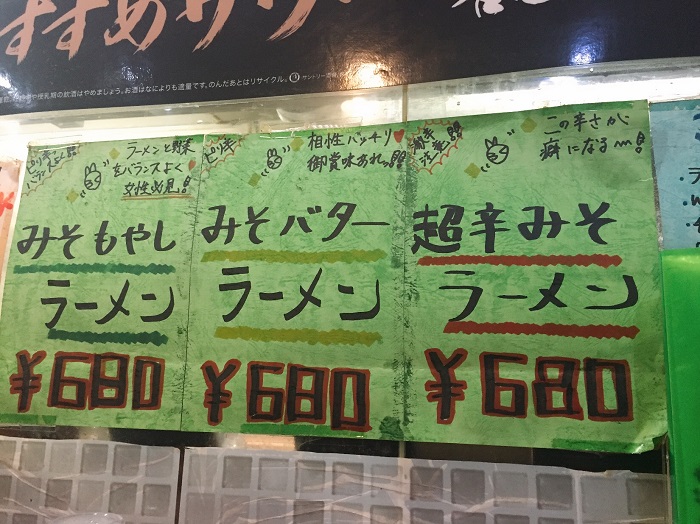 すすめサワー
期や授乳期の飲酒はやめましょう。お酒はなによりも適量です。のんだあとはリサイクル。 サントリー
ラーメンと野菜
をバランスよく
女性必見!
みそもやし
ラーメン
¥680
ピリ辛
相性バッチリ♥
御賞味あれっ!!
みそバター
ラーメン
¥680
この辛さが
癖になる〜!!
超辛みそ
ラーメン
¥680